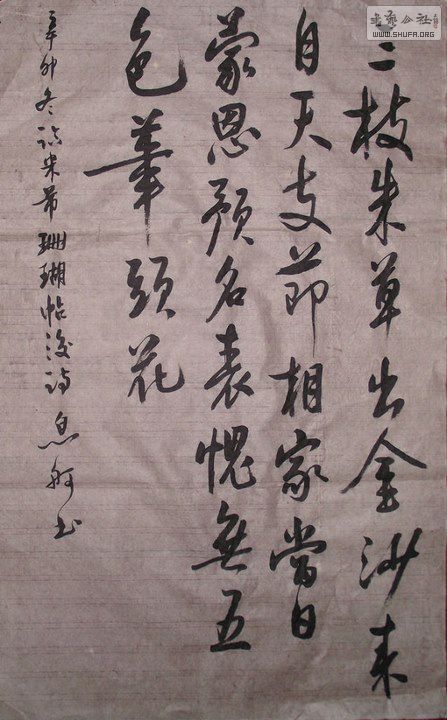 三枝朱草出金沙来
自天支節相家當日
蒙恩預名表愧無五
色筆頭花
辛卯冬臨米芾珊瑚帖後詩 息舸书
書藝公社
WWW.SHUFA.ORG